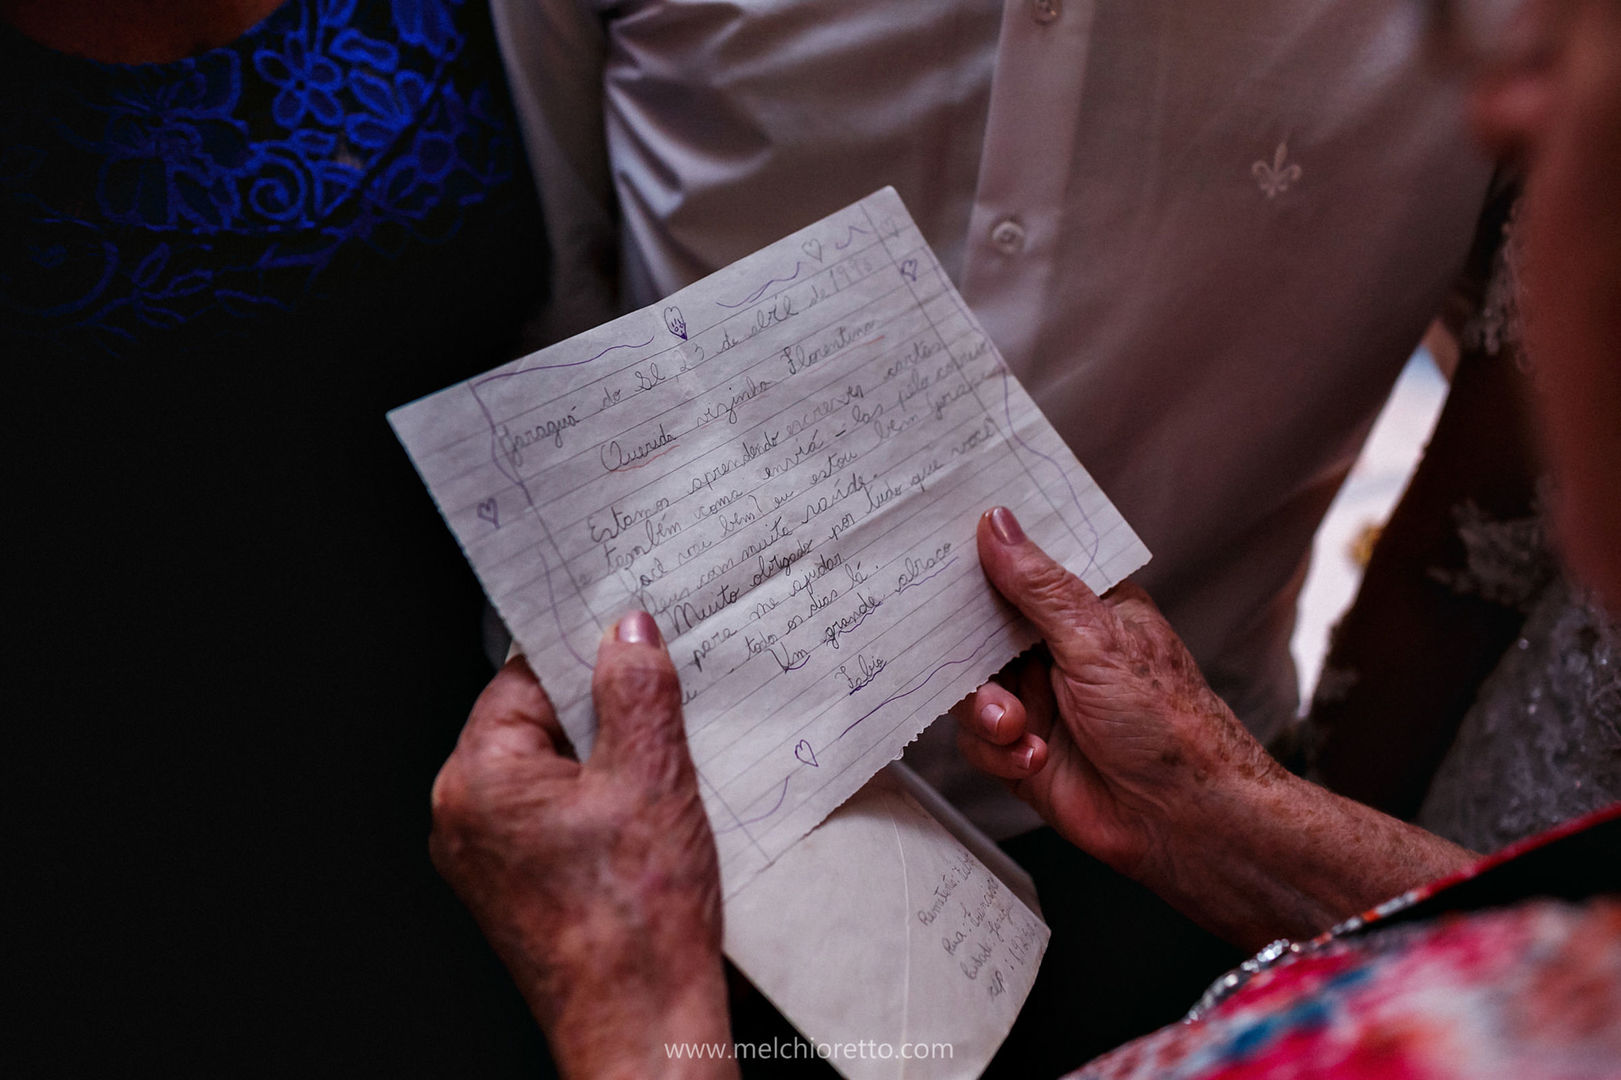 Jaraguá do Sl, 23 de abril de 1998
Querida vizinha Florentina
Estamos aprendendo escrever cartas
também como enviá-las pelo correio
você vai bem? eu estou bem graças a
Deus com muita saúde.
Muito obrigado por tudo que você
para me ajudar
todos os dias lá.
Um grande abraço
Fabio
Remetente: Fabio
Rua:
Cidade: Jaraguá
cep:
www.melchioretto.com